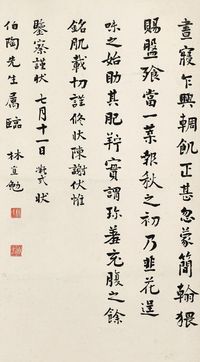 晝寢乍興輖飢正甚忽蒙簡翰猥
賜盤飧當一葉報秋之初乃韭花逞
味之始助其肥羜實謂珍羞充腹之餘
銘肌載切謹修狀陳謝伏惟
鑒察謹狀 七月十一日 凝式 狀
伯陶先生屬臨 林直勉